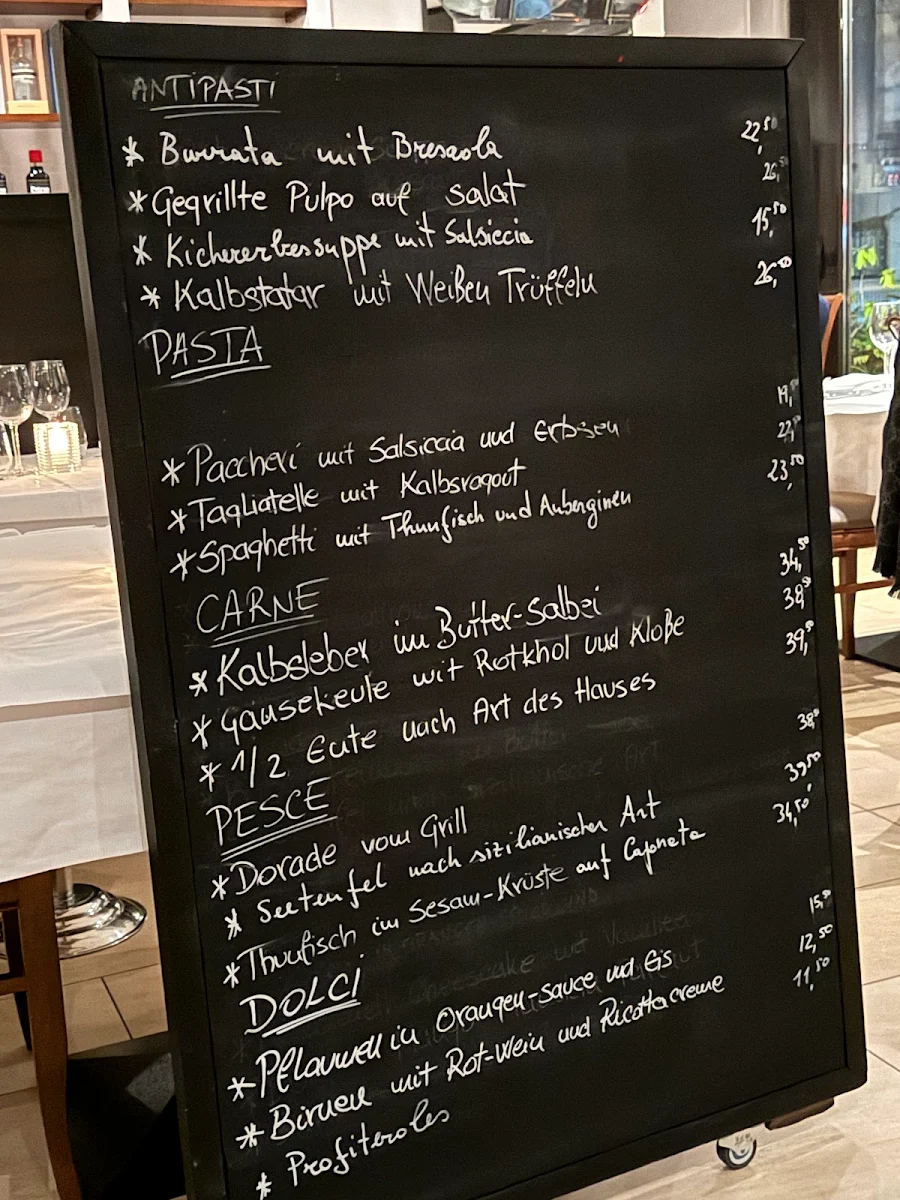 ANTIPASTI
* Burrata mit Bresaola 22,50
* Gegrillte Pulpo auf Salat 26,50
* Kichererbsensuppe mit Salsiccia 15,50
* Kalbstatar mit Weißen Trüffeln 26,50
PASTA
* Paccheri mit Salsiccia und Erbsen 19,
* Tagliatelle mit Kalbsragout 22,
* Spaghetti mit Thunfisch und Auberginen 23,50
CARNE
* Kalbsleber im Butter-Salbei 34,50
* Gänsekeule mit Rotkhol und Kloße 38,50
* 1/2 Ente nach Art des Hauses 39,50
PESCE
* Dorade vom Grill 38,50
* Seeteufel nach sizilianischer Art 39,50
* Thunfisch im Sesam-Krüste auf Caponata 34,50
DOLCI
* Pflaumen in Orangen-sauce und Eis 15,50
* Birnen mit Rot-Wein und Ricottacreme 12,50
* Profiteroles 11,50